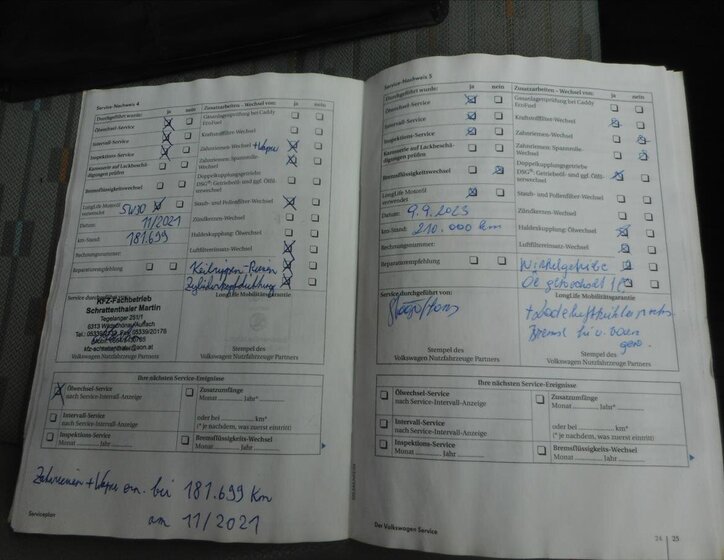 Service-Nachweis 4
Durchgeführt wurde: ja nein
Ölwechsel-Service
Intervall-Service
Inspektions-Service
Karosserie auf Lackbeschä-
digungen prüfen
Bremsflüssigkeitswechsel
LongLife Motoröl
verwendet 5W30
Datum: 11/2021
km-Stand: 181.699
Rechnungsnummer:
Reparaturempfehlung
Zusatzarbeiten - Wechsel von: ja nein
Gasanlagenprüfung bei Caddy
EcoFuel
Kraftstofffilter-Wechsel
Zahnriemen-Wechsel + Wapu
Zahnriemen: Spannrolle-
Wechsel
Doppelkupplungsgetriebe
DSG®: Getriebeöl- und ggf. Ölfil-
terwechsel
Staub- und Pollenfilter-Wechsel
Zündkerzen-Wechsel
Haldexkupplung: Ölwechsel
Luftfiltereinsatz-Wechsel
Keilrippen-Riemen
Zylinderkopfdichtung
Service durchgeführt:
Kfz-Fachbetrieb
Schrattenthaler Martin
Tegelanger 251/1
6313 Wildschönau/Auffach
kfz-schrattenthaler@aon.at
Stempel des
Volkswagen Nutzfahrzeuge Partners
LongLife Mobilitätsgarantie
Stempel des
Volkswagen Nutzfahrzeuge Partners
Ihre nächsten Service-Ereignisse
Ölwechsel-Service
nach Service-Intervall-Anzeige
Intervall-Service
nach Service-Intervall-Anzeige
Inspektions-Service
Monat Jahr
Zusatzumfänge
Monat Jahr*
oder bei km*
(* je nachdem, was zuerst eintritt)
Bremsflüssigkeits-Wechsel
Monat Jahr
Zahnriemen + Wapu ern. bei 181.699 Km
am 11/2021
Serviceplan
Service-Nachweis 5
Durchgeführt wurde: ja nein
Ölwechsel-Service
Intervall-Service
Inspektions-Service
Karosserie auf Lackbeschä-
digungen prüfen
Bremsflüssigkeitswechsel
LongLife Motoröl
verwendet
Datum: 9.9.2023
km-Stand: 210.000 km
Rechnungsnummer:
Reparaturempfehlung
Zusatzarbeiten - Wechsel von: ja nein
Gasanlagenprüfung bei Caddy
EcoFuel
Kraftstofffilter-Wechsel
Zahnriemen-Wechsel
Zahnriemen: Spannrolle-
Wechsel
Doppelkupplungsgetriebe
DSG®: Getriebeöl- und ggf. Ölfil-
terwechsel
Staub- und Pollenfilter-Wechsel
Zündkerzen-Wechsel
Haldexkupplung: Ölwechsel
Luftfiltereinsatz-Wechsel
Winkelgetriebe
Öl getauscht
Service durchgeführt:
Stempel des
Volkswagen Nutzfahrzeuge Partners
LongLife Mobilitätsgarantie
Bremse hi u. voan
Stempel des
Volkswagen Nutzfahrzeuge Partners
Ihre nächsten Service-Ereignisse
Ölwechsel-Service
nach Service-Intervall-Anzeige
Intervall-Service
nach Service-Intervall-Anzeige
Inspektions-Service
Monat Jahr
Zusatzumfänge
Monat Jahr*
oder bei km*
(* je nachdem, was zuerst eintritt)
Bremsflüssigkeits-Wechsel
Monat Jahr
Der Volkswagen Service
24 25